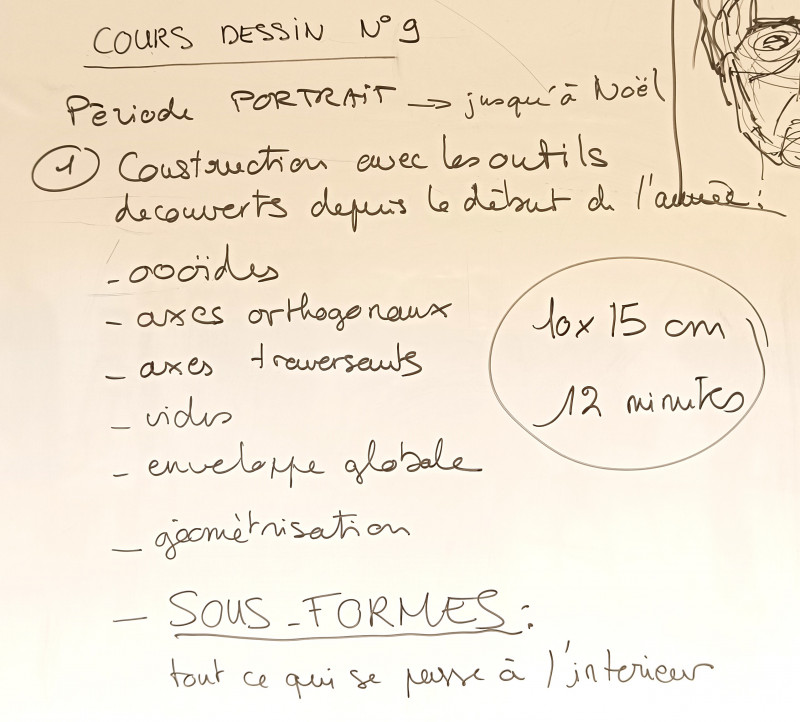 COURS DESSIN N° 9
Période PORTRAIT → jusqu'à Noël
① Construction avec les outils
decouverts depuis le début de l'année :
- ovoïdes
- axes orthogonaux
- axes traversants
- vides
- enveloppe globale
- géométrisation
- SOUS-FORMES :
tout ce qui se passe à l'interieur
10x15 cm
12 minutes